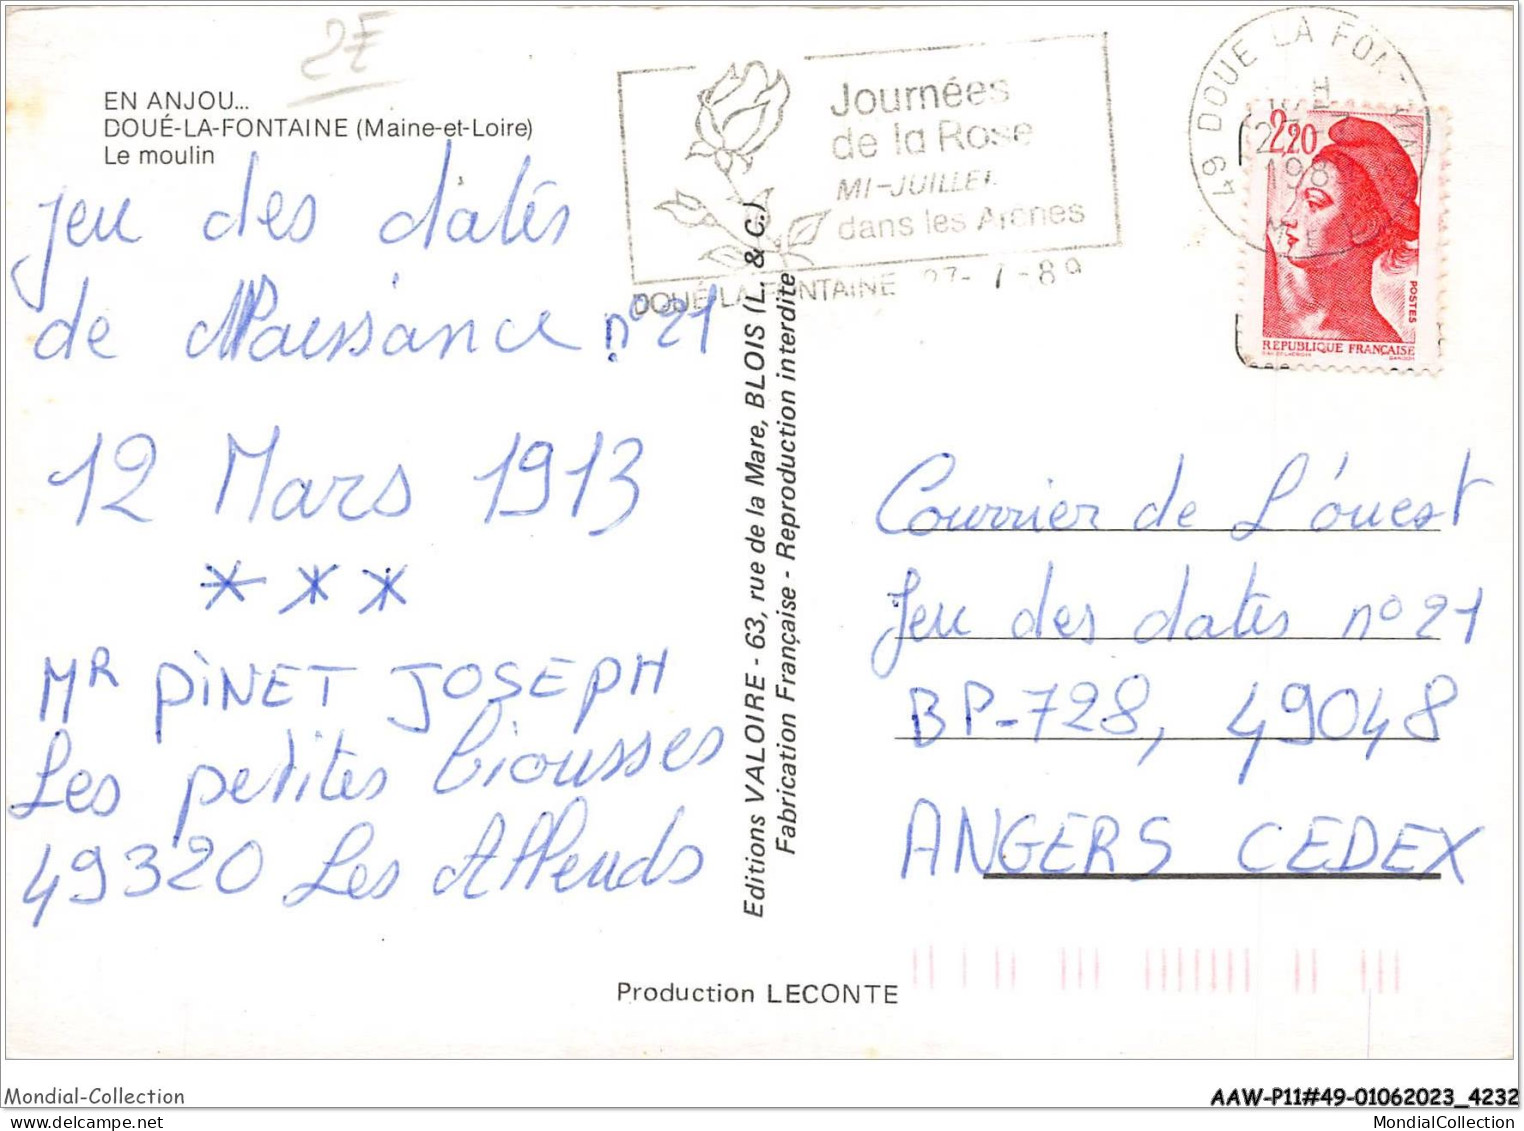 2€
EN ANJOU...
DOUÉ-LA-FONTAINE (Maine-et-Loire)
Le moulin
Jeu des datés
de Naissance n° 21
12 Mars 1913
* * *
Mr PINET JOSEPH
Les petites biousses
49320 Les Alleuds
Journées
de la Rose
MI-JUILLET
dans les Arènes
DOUÉ LA FONTAINE 27-7-89
49 DOUE LA FONTAINE
2,20
POSTES
REPUBLIQUE FRANÇAISE
Editions VALOIRE - 63, rue de la Mare, BLOIS (L. & C.)
Fabrication Française - Reproduction interdite
Courrier de L'ouest
Jeu des dates n° 21
BP-728, 49048
ANGERS CEDEX
Production LECONTE
Mondial-Collection
AAW-P11#49-01062023_4232
MondialCollection